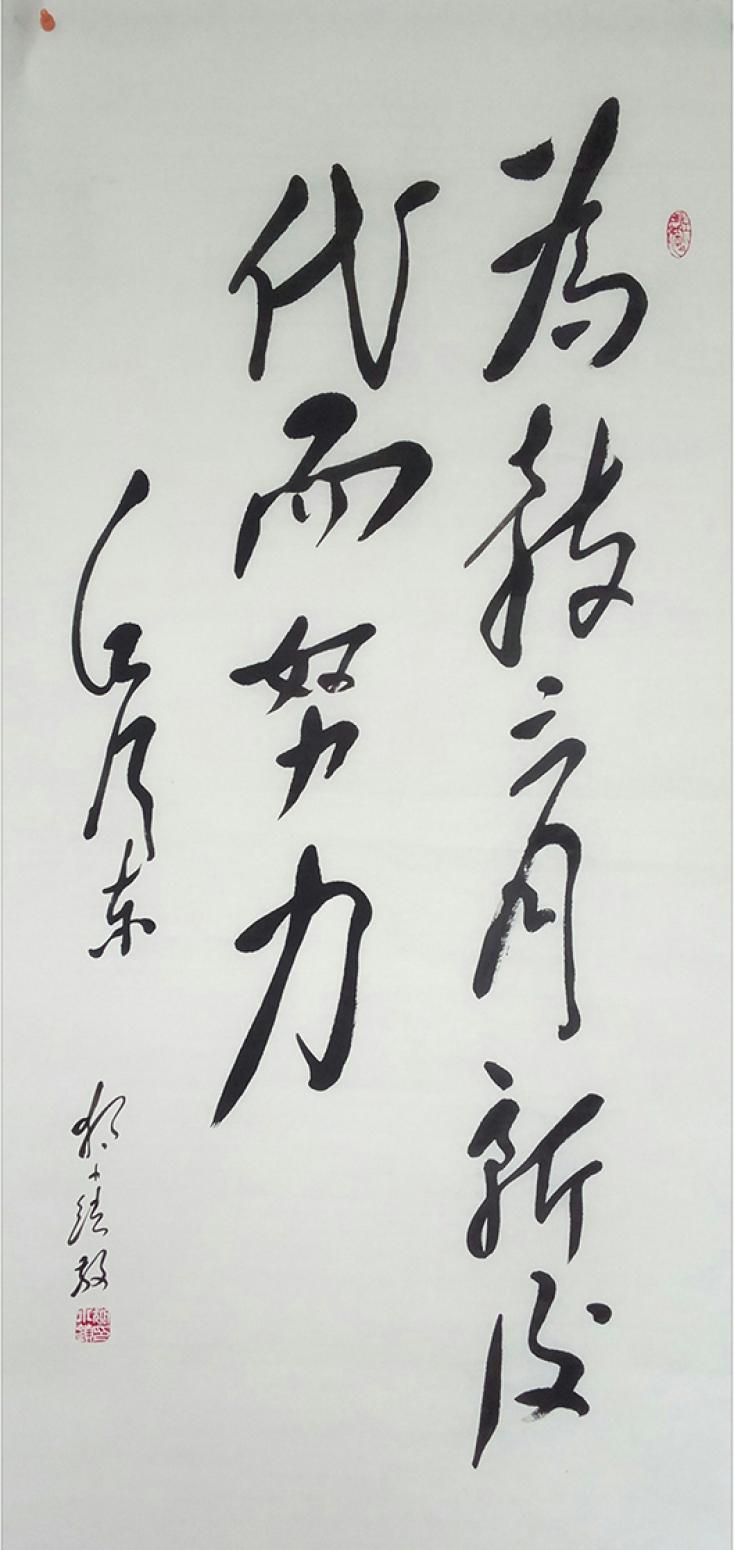 為教育新後
代而努力
毛泽东